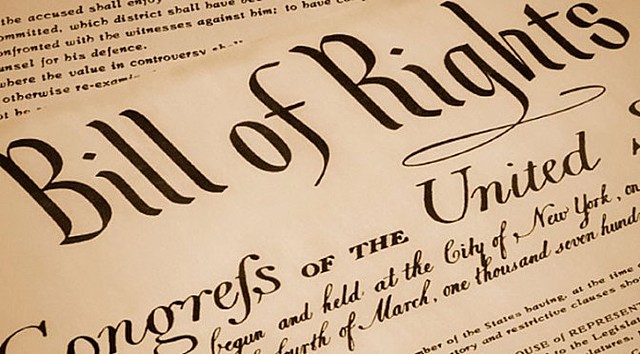 the accused shall enjoy
ommitted, which district shall have bee
onfronted with the witnesses against him; to have co
unsel for his defence.
where the value in controversy shall
otherwise re-exam
ot be
Bill of Rights
Congreſs OF THE United S
begun and held at the City of New York, on
fourth of March, one thousand seven hund
mber of the States having, at the time o
ory and restrictive clauses shou
OUSE of REPRESEN
the Legisla
tures,